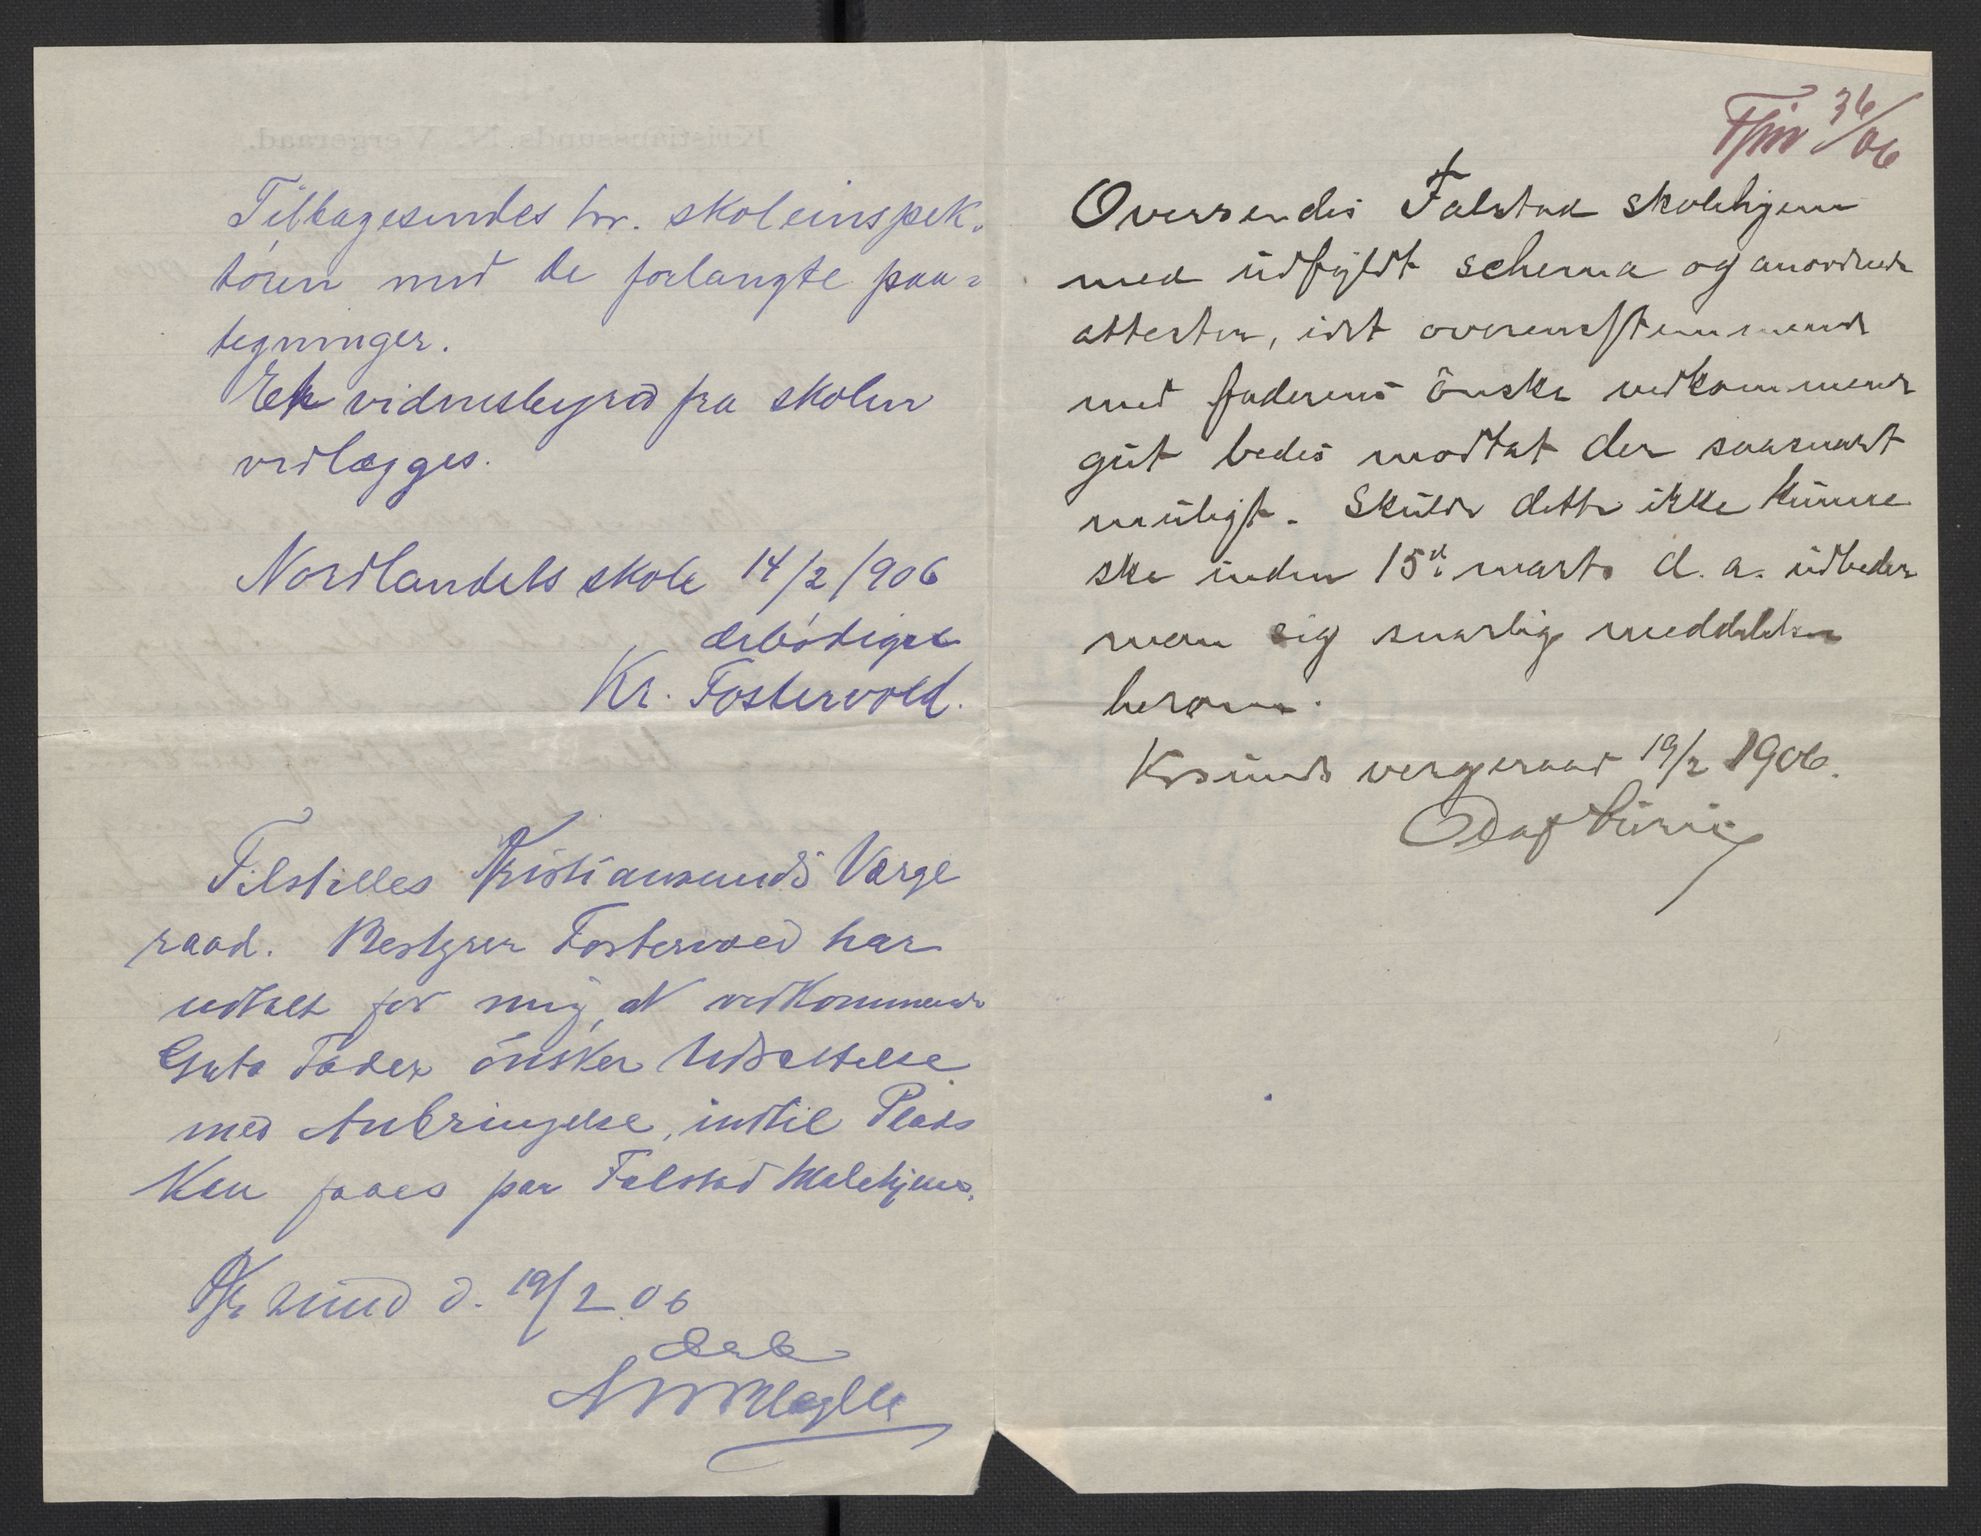 Tilbagesendes hr. skoleinspek-
tøren med de forlangte paa=
tegninger.
Et vidnesbyrd fra skolen
vedlægges.
Nordlandets skole 14/2 1906
ærbødigst
Kr. Fostervold.
Tilstilles Kristiansunds Værge
raad. Bestyrer Fostervold har
udtalt for mig, at vedkommende
Guts Fader ønsker Udsættelse
med Anbringelse, indtil Plads
Kan faaes paa Falstad Skolehjem.
Kr.sund d. 19/2 06
Ærb
36/06
Oversendes Falstad skolehjem
med udfyldt schema og anordnede
attester, idet overensstemmende
med faderens ønske vedkommende
gut bedes modtat der saasnart
muligt. Skulde dette ikke kunne
ske inden 15de marts d. a. udbeder
man sig snarlig meddelelse
herom.
Krsunds vergeraad 19/2 1906.
Olaf